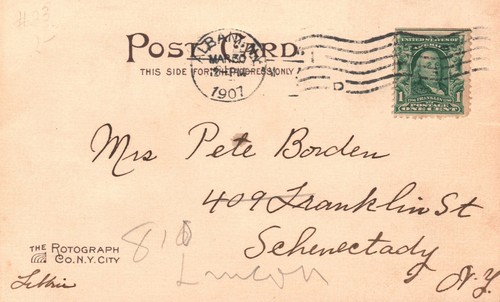 #23
POST CARD.
THIS SIDE FOR THE ADDRESS ONLY
ALBANY, N.Y.
MAR 30
12-PM
1907
D
UNITED STATES OF AMERICA
1 1
FRANKLIN
POSTAGE
ONE CENT
Mrs Pete Borden
409 Franklin St
Schenectady
N.Y.
810
THE ROTOGRAPH
CO. N.Y. CITY
Libbie